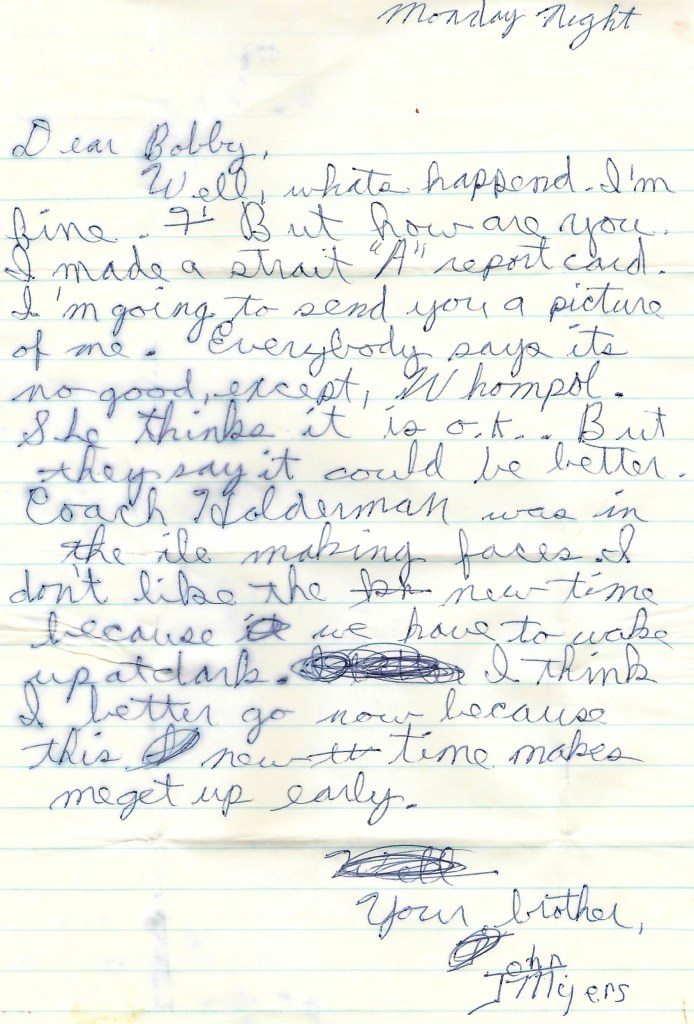 Monday Night
Dear Bobby,
Well, whats happend. I'm
fine. But how are you.
I made a strait "A" report card.
I'm going to send you a picture
of me. Everybody says its
no good, except, Whompol.
She thinks it is o.k.. But
they say it could be better.
Coach Holderman was in
the ile making faces. I
don't like the new time
because we have to wake
up at dark. I think
I better go now because
this new time makes
me get up early.
Your brother,
John
Myers